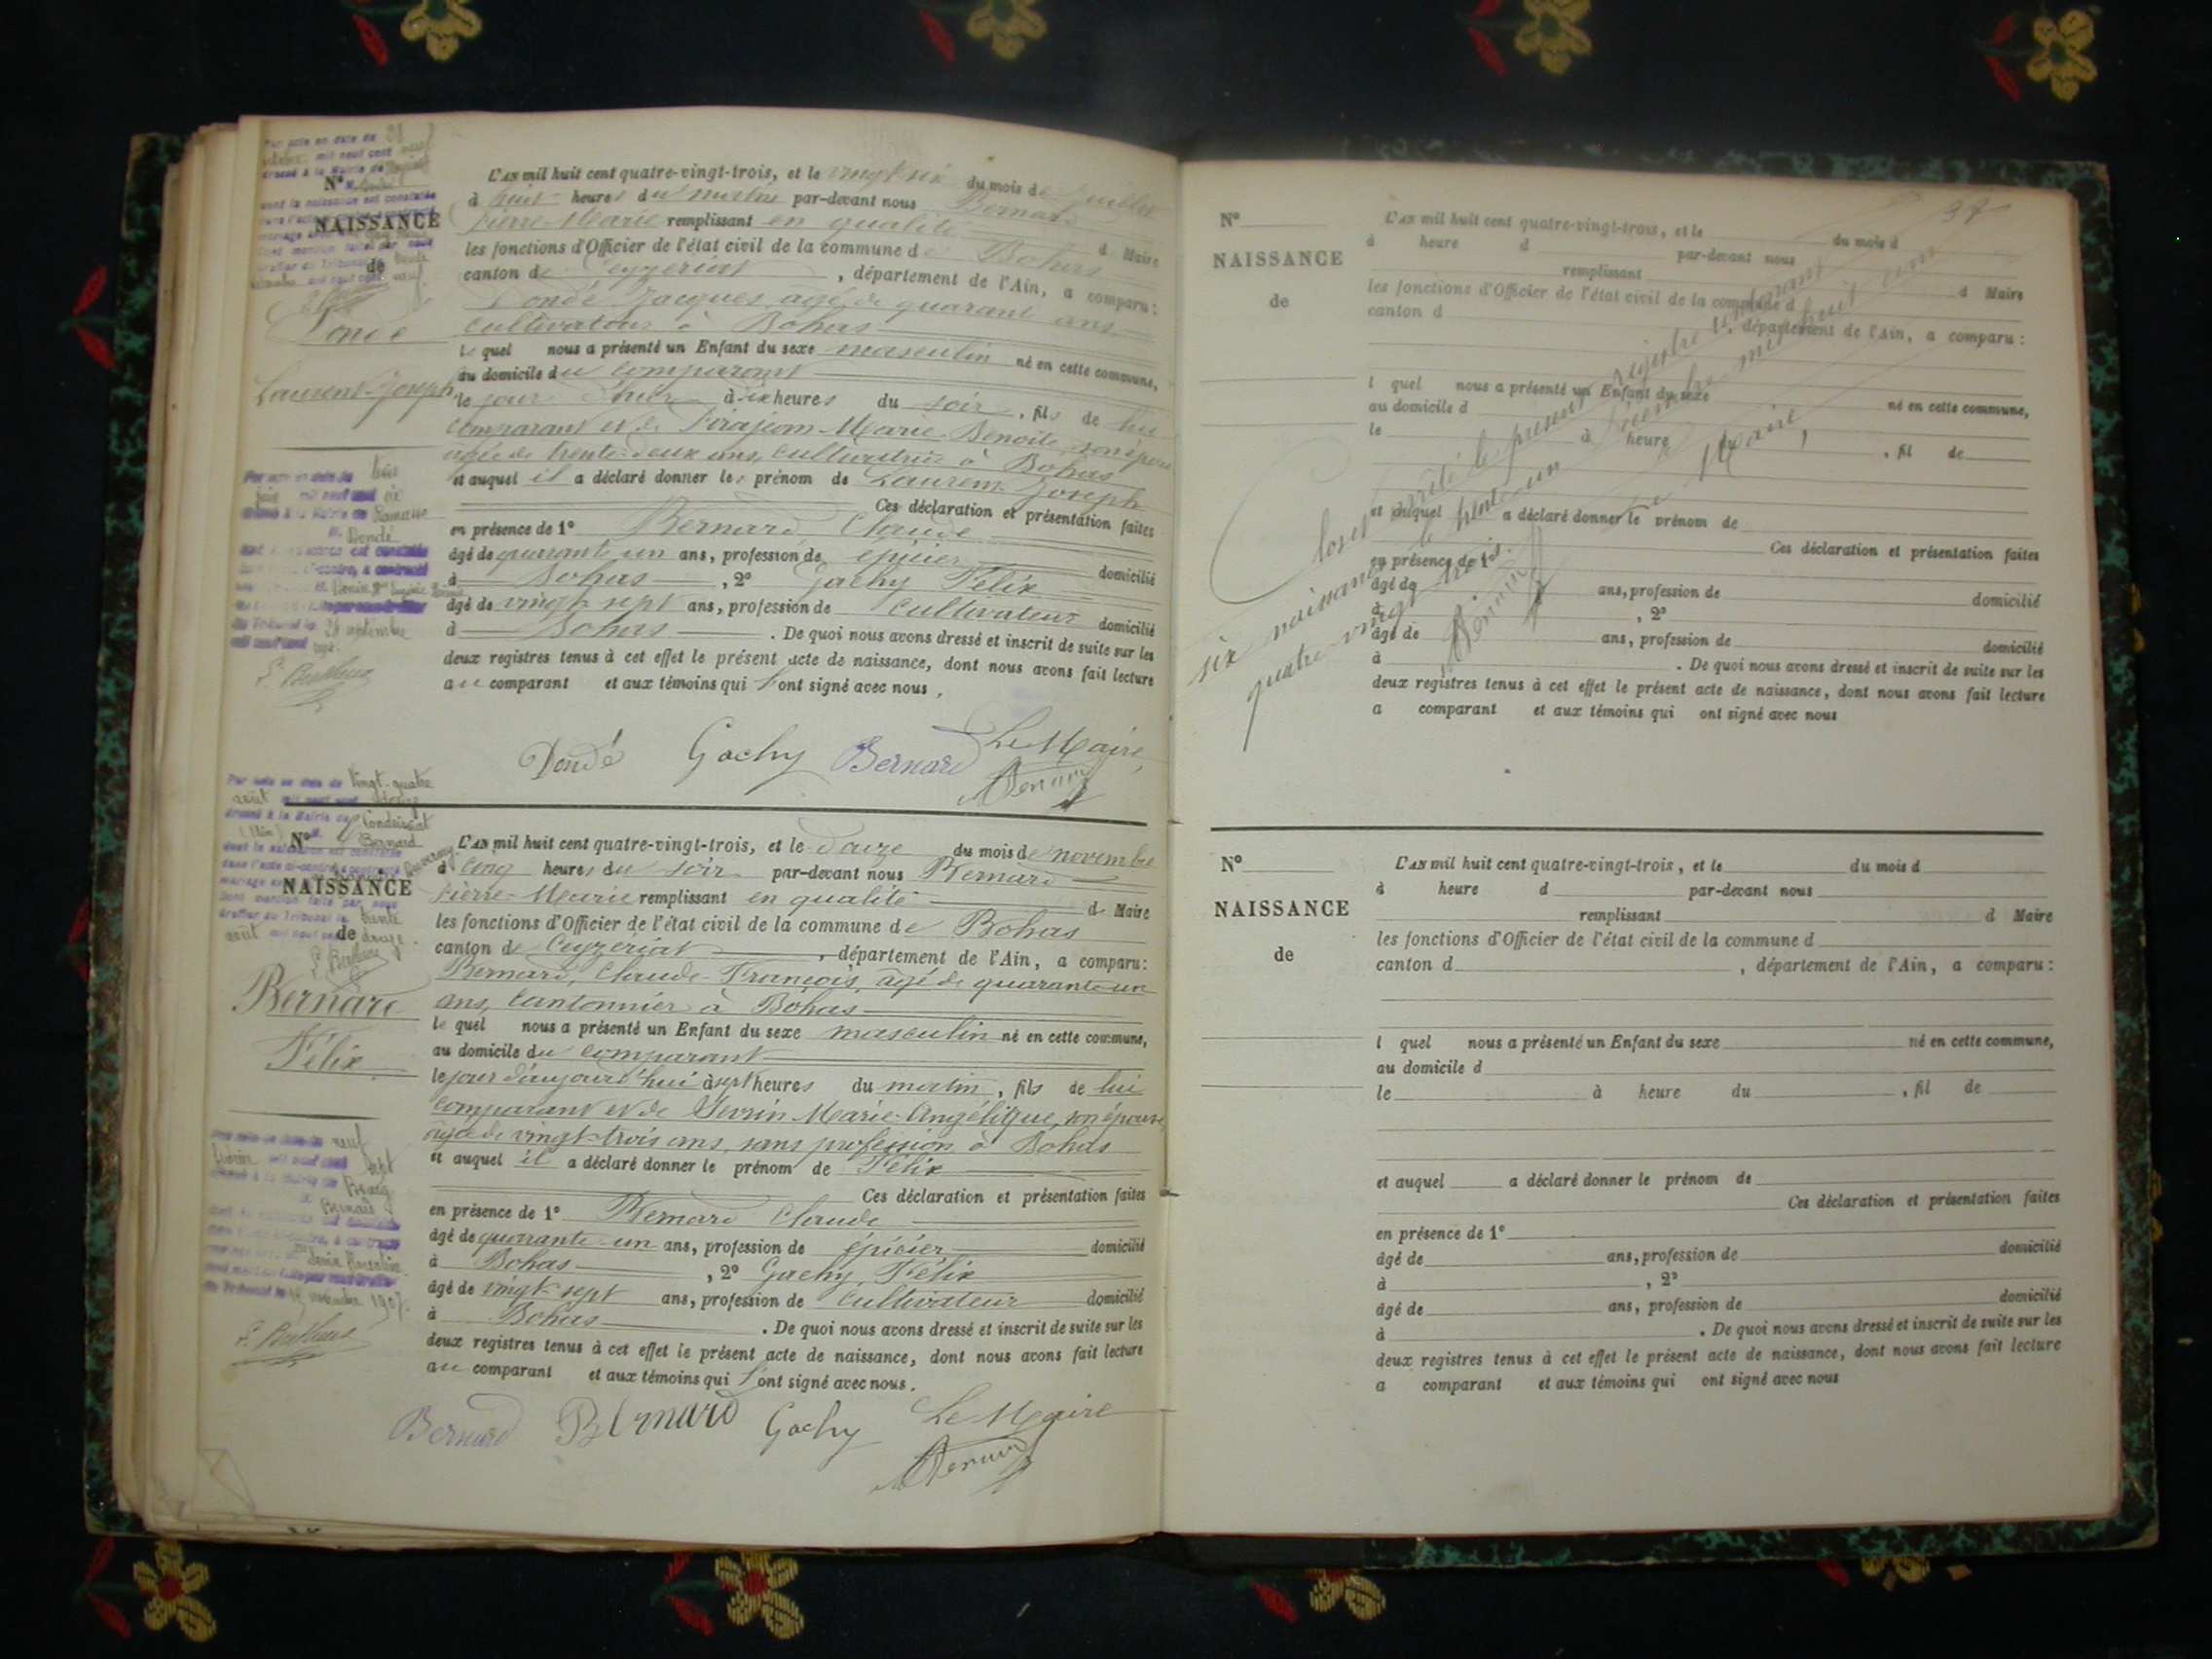 Par acte en date du 21
octobre mil neuf cent neuf
dressé à la Mairie de
N°
dont la naissance est constatée
NAISSANCE
de
Dondé
Laurent-Joseph
L'AN mil huit cent quatre-vingt-trois, et le vingt six du mois de Juillet
à huit heures du matin par-devant nous Bernard
Pierre-Marie remplissant en qualité de Maire
les fonctions d'Officier de l'état civil de la commune de Bohas
canton de Ceyzeriat, département de l'Ain, a comparu :
Dondé Jacques, âgé de quarante ans
cultivateur à Bohas
lequel nous a présenté un Enfant du sexe masculin né en cette commune,
au domicile du comparant
le jour d'hier à dix heures du soir, fils de lui
comparant et de Marie-Benoîte, son épouse
âgée de trente-deux ans, cultivatrice à Bohas
et auquel il a déclaré donner les prénom de Laurent-Joseph
Ces déclaration et présentation faites
en présence de 1° Bernard Claude
âgé de quarante un ans, profession de épicier domicilié
à Bohas, 2° Gachy Félix
âgé de vingt sept ans, profession de cultivateur domicilié
à Bohas. De quoi nous avons dressé et inscrit de suite sur les
deux registres tenus à cet effet le présent acte de naissance, dont nous avons fait lecture
au comparant et aux témoins qui l'ont signé avec nous.
Dondé Gachy Bernard Le Maire,
Bernard
Par acte en date du trois
juin mil neuf cent six
dressé à la Mairie de Ramasse
M. Dondé
du Tribunal le 28 septembre
P. Berthaud
Par acte en date du vingt-quatre
août mil neuf cent douze
dressé à la Mairie de Condeissiat
(Ain) M. Bernard
N°
NAISSANCE
Dont mention faite par nous
Greffier du Tribunal le trente
août mil neuf cent douze.
de
Bernard
Félix
L'AN mil huit cent quatre-vingt-trois, et le douze du mois de novembre
à cinq heures du soir par-devant nous Bernard
Pierre-Marie remplissant en qualité de Maire
les fonctions d'Officier de l'état civil de la commune de Bohas
canton de Ceyzériat, département de l'Ain, a comparu :
Bernard, Claude-François, âgé de quarante-un
ans, Cantonnier à Bohas
lequel nous a présenté un Enfant du sexe masculin né en cette commune,
au domicile du comparant
le jour d'aujourd'hui à sept heures du matin, fils de lui
comparant et de Sevrin-Marie-Angélique, son épouse
âgée de vingt-trois ans, sans profession à Bohas
et auquel il a déclaré donner le prénom de Félix
Ces déclaration et présentation faites
en présence de 1° Bernard Claude
âgé de quarante-un ans, profession de épicier domicilié
à Bohas, 2° Gachy, Félix
âgé de vingt-sept ans, profession de cultivateur domicilié
à Bohas. De quoi nous avons dressé et inscrit de suite sur les
deux registres tenus à cet effet le présent acte de naissance, dont nous avons fait lecture
au comparant et aux témoins qui l'ont signé avec nous.
Bernard Bernard Gachy Le Maire
Bernard
Par acte en date du neuf
février mil neuf cent sept
dressé à la Mairie de Bourg
M. Bernard
du Tribunal le novembre 1907.
P. Berthaud
37
N°
NAISSANCE
de
L'AN mil huit cent quatre-vingt-trois, et le du mois d
à heure d par-devant nous
remplissant d Maire
les fonctions d'Officier de l'état civil de la commune d
canton d, département de l'Ain, a comparu :
l quel nous a présenté un Enfant du sexe né en cette commune,
au domicile d
le à heure du, fil de
et auquel a déclaré donner le prénom de
Ces déclaration et présentation faites
en présence de 1°
âgé de ans, profession de domicilié
à, 2°
âgé de ans, profession de domicilié
à. De quoi nous avons dressé et inscrit de suite sur les
deux registres tenus à cet effet le présent acte de naissance, dont nous avons fait lecture
a comparant et aux témoins qui ont signé avec nous
Clos et arrêté le présent registre contenant
six naissances le trente-un Décembre mil huit cent
quatre-vingt-trois.
Le Maire,
Bernard
N°
NAISSANCE
de
L'AN mil huit cent quatre-vingt-trois, et le du mois d
à heure d par-devant nous
remplissant d Maire
les fonctions d'Officier de l'état civil de la commune d
canton d, département de l'Ain, a comparu :
l quel nous a présenté un Enfant du sexe né en cette commune,
au domicile d
le à heure du, fil de
et auquel a déclaré donner le prénom de
Ces déclaration et présentation faites
en présence de 1°
âgé de ans, profession de domicilié
à, 2°
âgé de ans, profession de domicilié
à. De quoi nous avons dressé et inscrit de suite sur les
deux registres tenus à cet effet le présent acte de naissance, dont nous avons fait lecture
a comparant et aux témoins qui ont signé avec nous